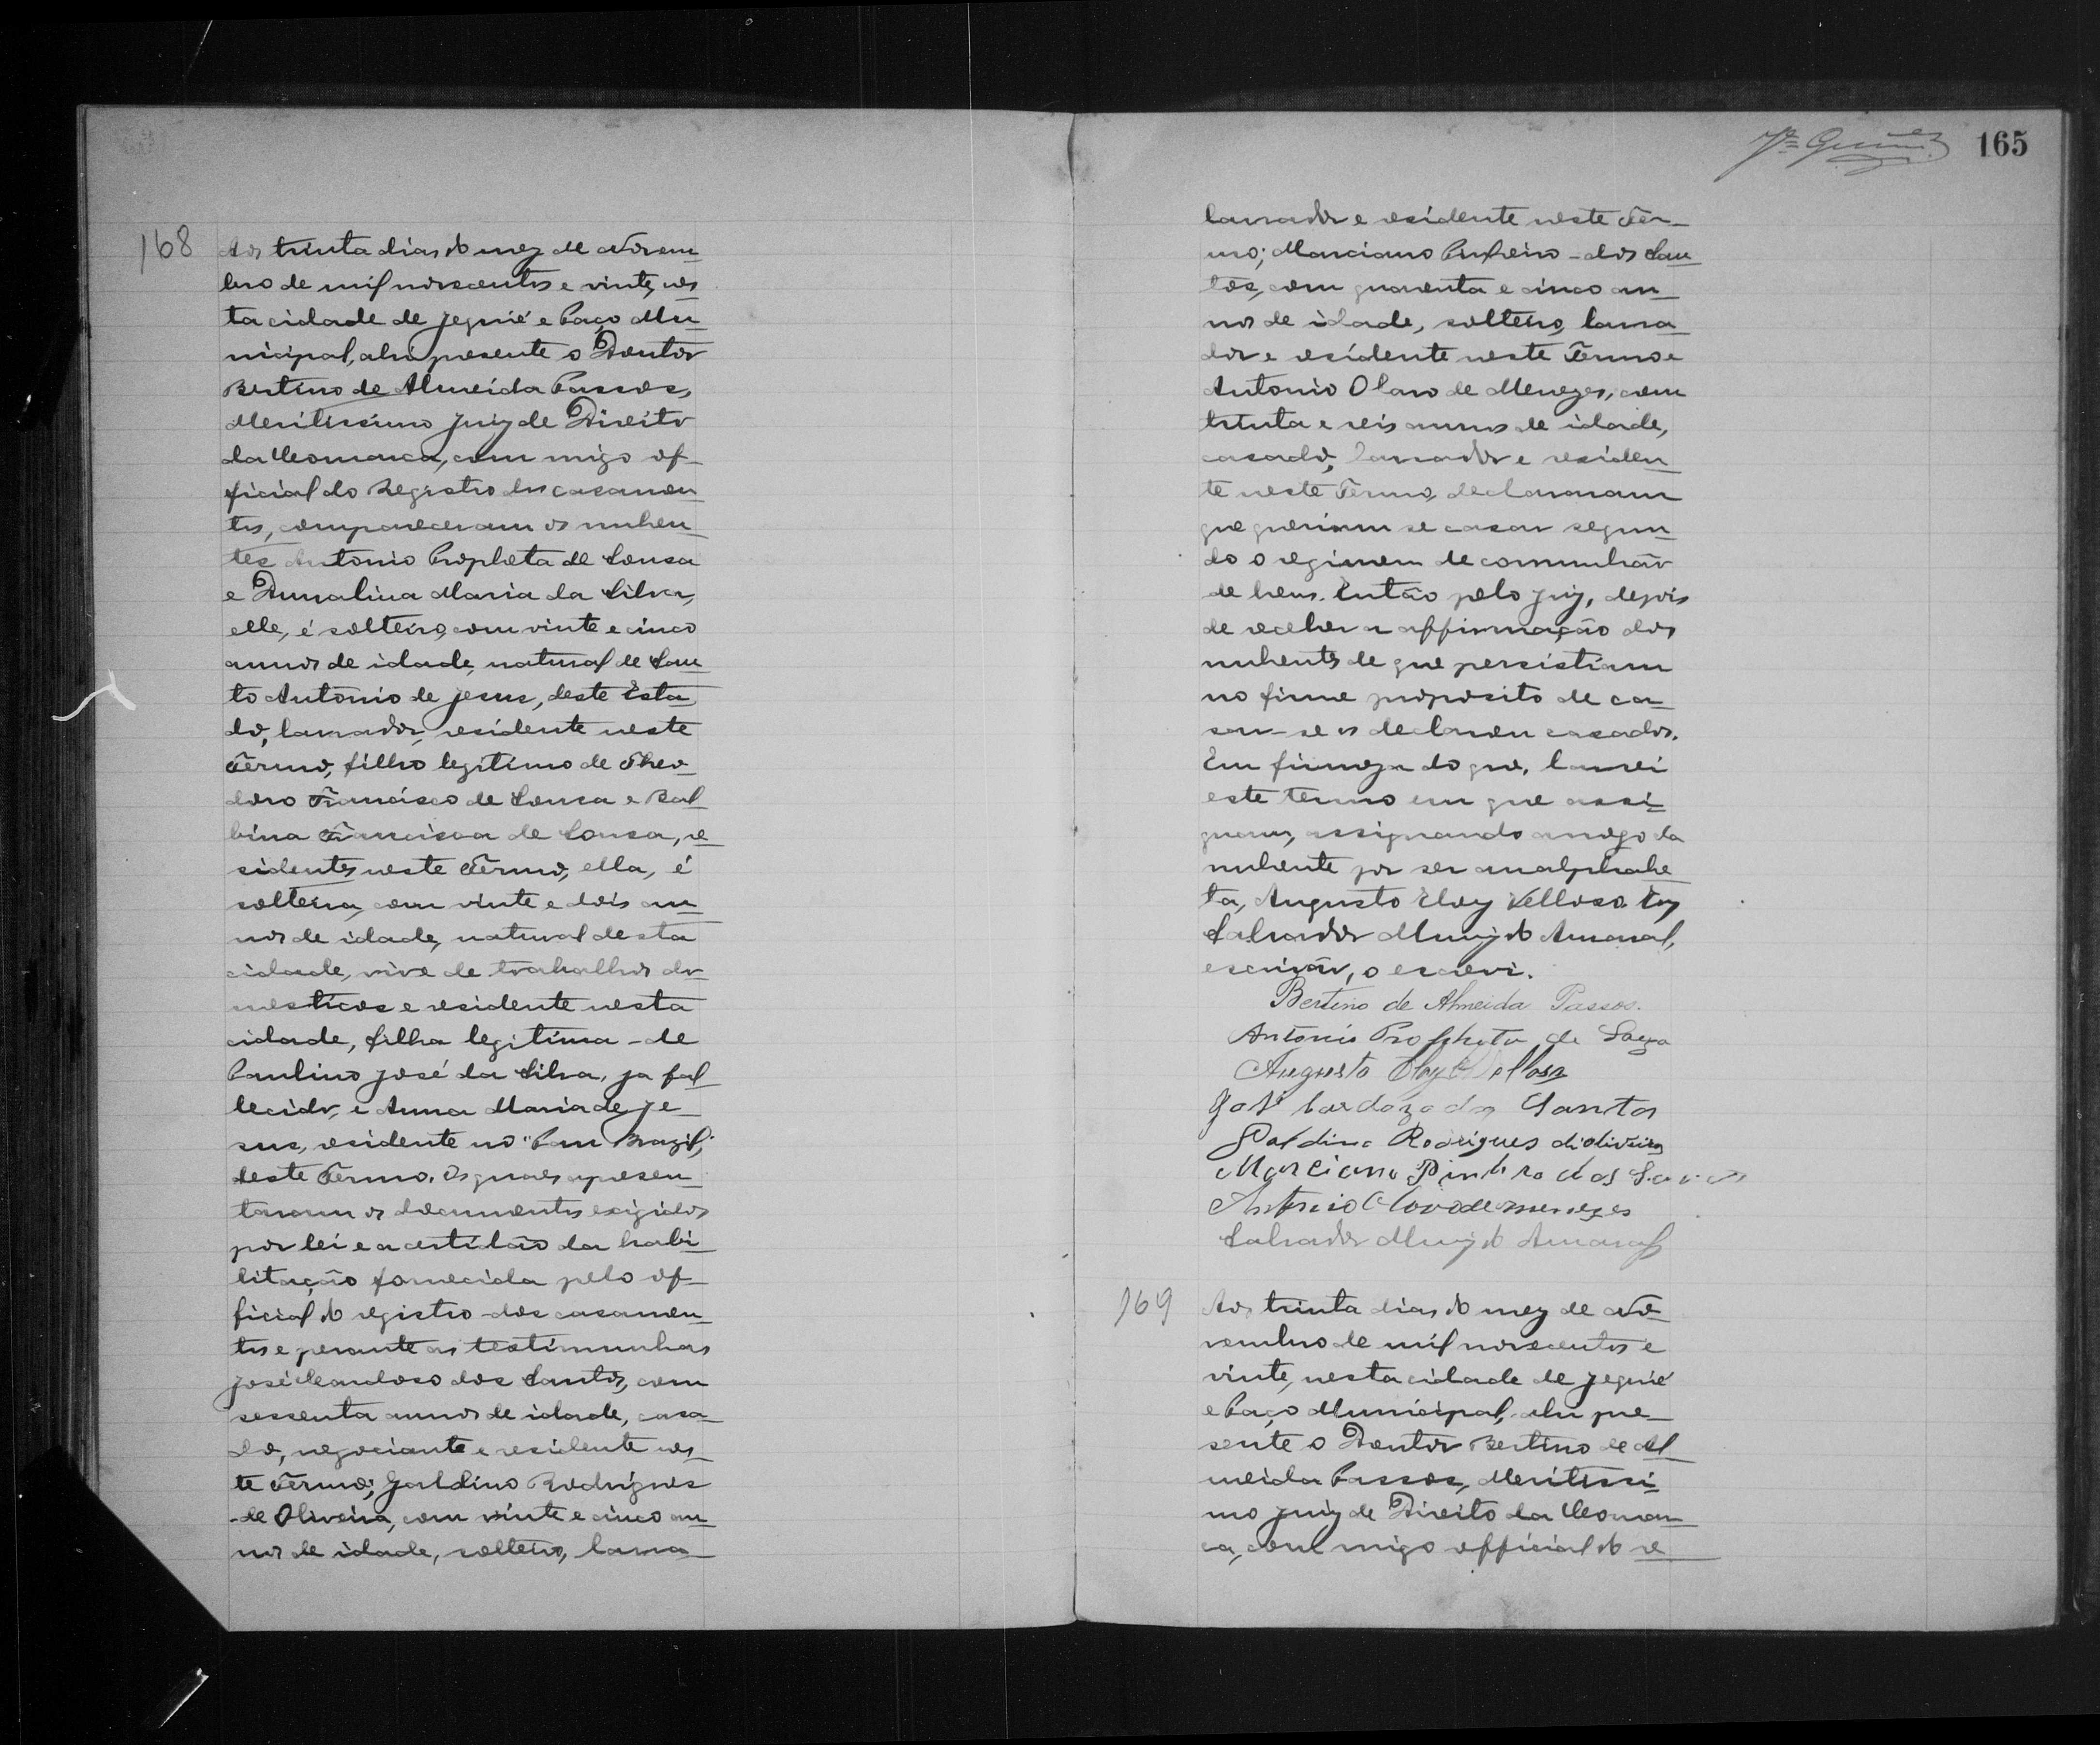 168
Aos trinta dias do mez de Novem
bro de mil novecentos e vinte, nes
ta cidade de Jequié e Paço Mu
nicipal, ahi presente o Doutor
Bertino de Almeida Passos,
Meritissimo Juiz de Direito
da Comarca, commigo of-
ficial do Registro dos casamen
tos, compareceram os nuben
tes Antonio Propheta de Sousa
e Durvalina Maria da Silva,
elle, é solteiro, com vinte e cinco
annos de idade, natural de San
to Antonio de Jesus, deste Esta
do, lavrador, residente neste
Termo, filho legitimo de Theo
doro Francisco de Sousa e Bal
bina Francisca de Sousa, re
sidentes neste Termo, ella, é
solteira, com vinte e dois an
nos de idade, natural desta
cidade, vive de trabalhos do
mesticos e residente nesta
cidade, filha legitima de
Paulino José da Silva, ja fal
lecido, e Anna Maria de Je
sus, residente no "Pau Brazil",
deste Termo. Os quaes apresen
taram os documentos exigidos
por lei e a certidão da habi
litação fornecida pelo of-
ficial do registro dos casamen
tos e perante as testimunhas
José Cardoso dos Santos, com
sessenta annos de idade, casa-
do, negociante e residente nes
te Termo; Galdino Rodrigues
de Oliveira, com vinte e cinco an
nos de idade, solteiro, lavra-
165
lavrador e residente neste Ter-
mo; Marciano Pinheiro dos San
tos, com quarenta e cinco an
nos de idade, solteiro, lavra
dor e residente neste Termo e
Antonio Olavo de Menezes, com
trinta e seis annos de idade,
casado, lavrador e residen
te neste Termo, declararam
que queriam se casar segun
do o regimem de communhão
de bens. Então pelo Juiz, depois
de receber a affirmação dos
nubentes de que persistiam
no firme proposito de ca
sar-se os declarou casados.
Em firmeza do que, lavrei
este termo em que assi
gnam, assignando a rogo da
nubente por ser analphabe
ta, Augusto Eloy Velloso. Eu
Salvador Muniz do Amaral,
escrivão, o escrevi.
Bertino de Almeida Passos.
Antonio Propheta de Souza
Augusto Eloy Velloso
José Cardozo dos Santos
Galdino Rodrigues di oliveira
Marciano Pinhro dos Santos
Antonio Olavo de menezes
Salvador Muniz do Amaral
169
Aos trinta dias do mez de No
vembro de mil novecentos e
vinte, nesta cidade de Jequié
e Paço Municipal, ahi pre-
sente o Doutor Bertino de Al
meida Passos, Meritissi
mo Juiz de Direito da Comar
ca, commigo official do re